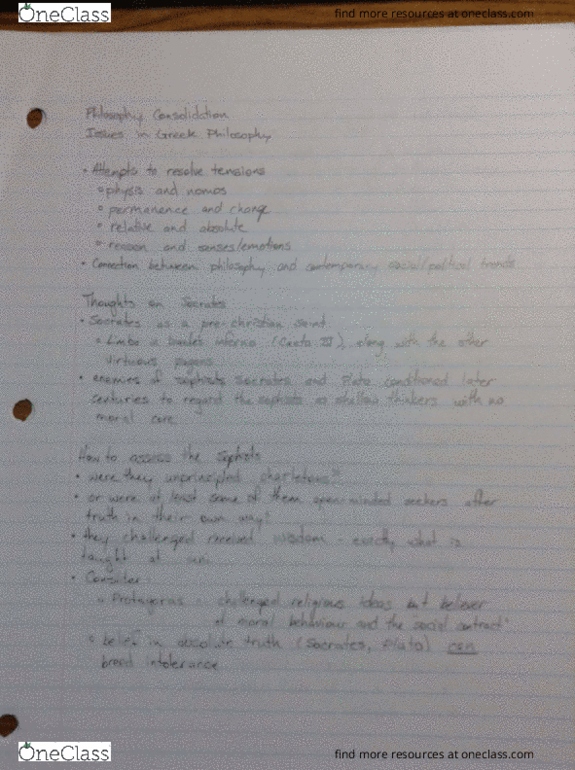 OneClass
find more resources at oneclass.com
Philosophy Consolidation
Issues in Greek Philosophy
• Attempts to resolve tensions
◦ physis and nomos
◦ permanence and change
◦ relative and absolute
◦ reason and senses/emotions
• Connection between philosophy and contemporary social/political trends
Thoughts on Socrates
• Socrates as a pre-christian saint
◦ Limbo in Dante's inferno (Canto), along with the other
virtuous pagans
• enemies of sophists Socrates and Plato conditioned later
centuries to regard the sophists as shallow thinkers with no
moral core
How to assess the Sophists
• were they unprincipled charletons?
• or were at least some of them open-minded seekers after
truth in their own way?
• they challenged received wisdom - exactly what is
taught at uni.
• Consider:
◦ Protagoras - challenged religious ideas but believer
of moral behaviour and the social contract
◦ belief in absolute truth (Socrates, Plato) can
breed intolerance
OneClass
find more resources at oneclass.com